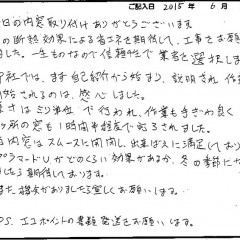 ご記入日 2015年 6月
日の内窓取り付けありがとうございます。
の断熱効果による省エネを期待して、工事をお願
ました。一生ものなので信頼性で業者を選択しま
社では、まず自己紹介から始まり、説明され 作業
開始されるのは、感心しました。
さはミリ単位で行われ、作業も手ぎわ良く
ヶ所の窓も1時間半程度で貼られました。
内窓はスムースに開閉し、出来ばえに満足しており
プラマードUがどのくらい効果があるか、冬の季節に
したら期待しております。
機会がありましたら宜しくお願いします。
P.S. エコポイントの書類発送をお願いします。